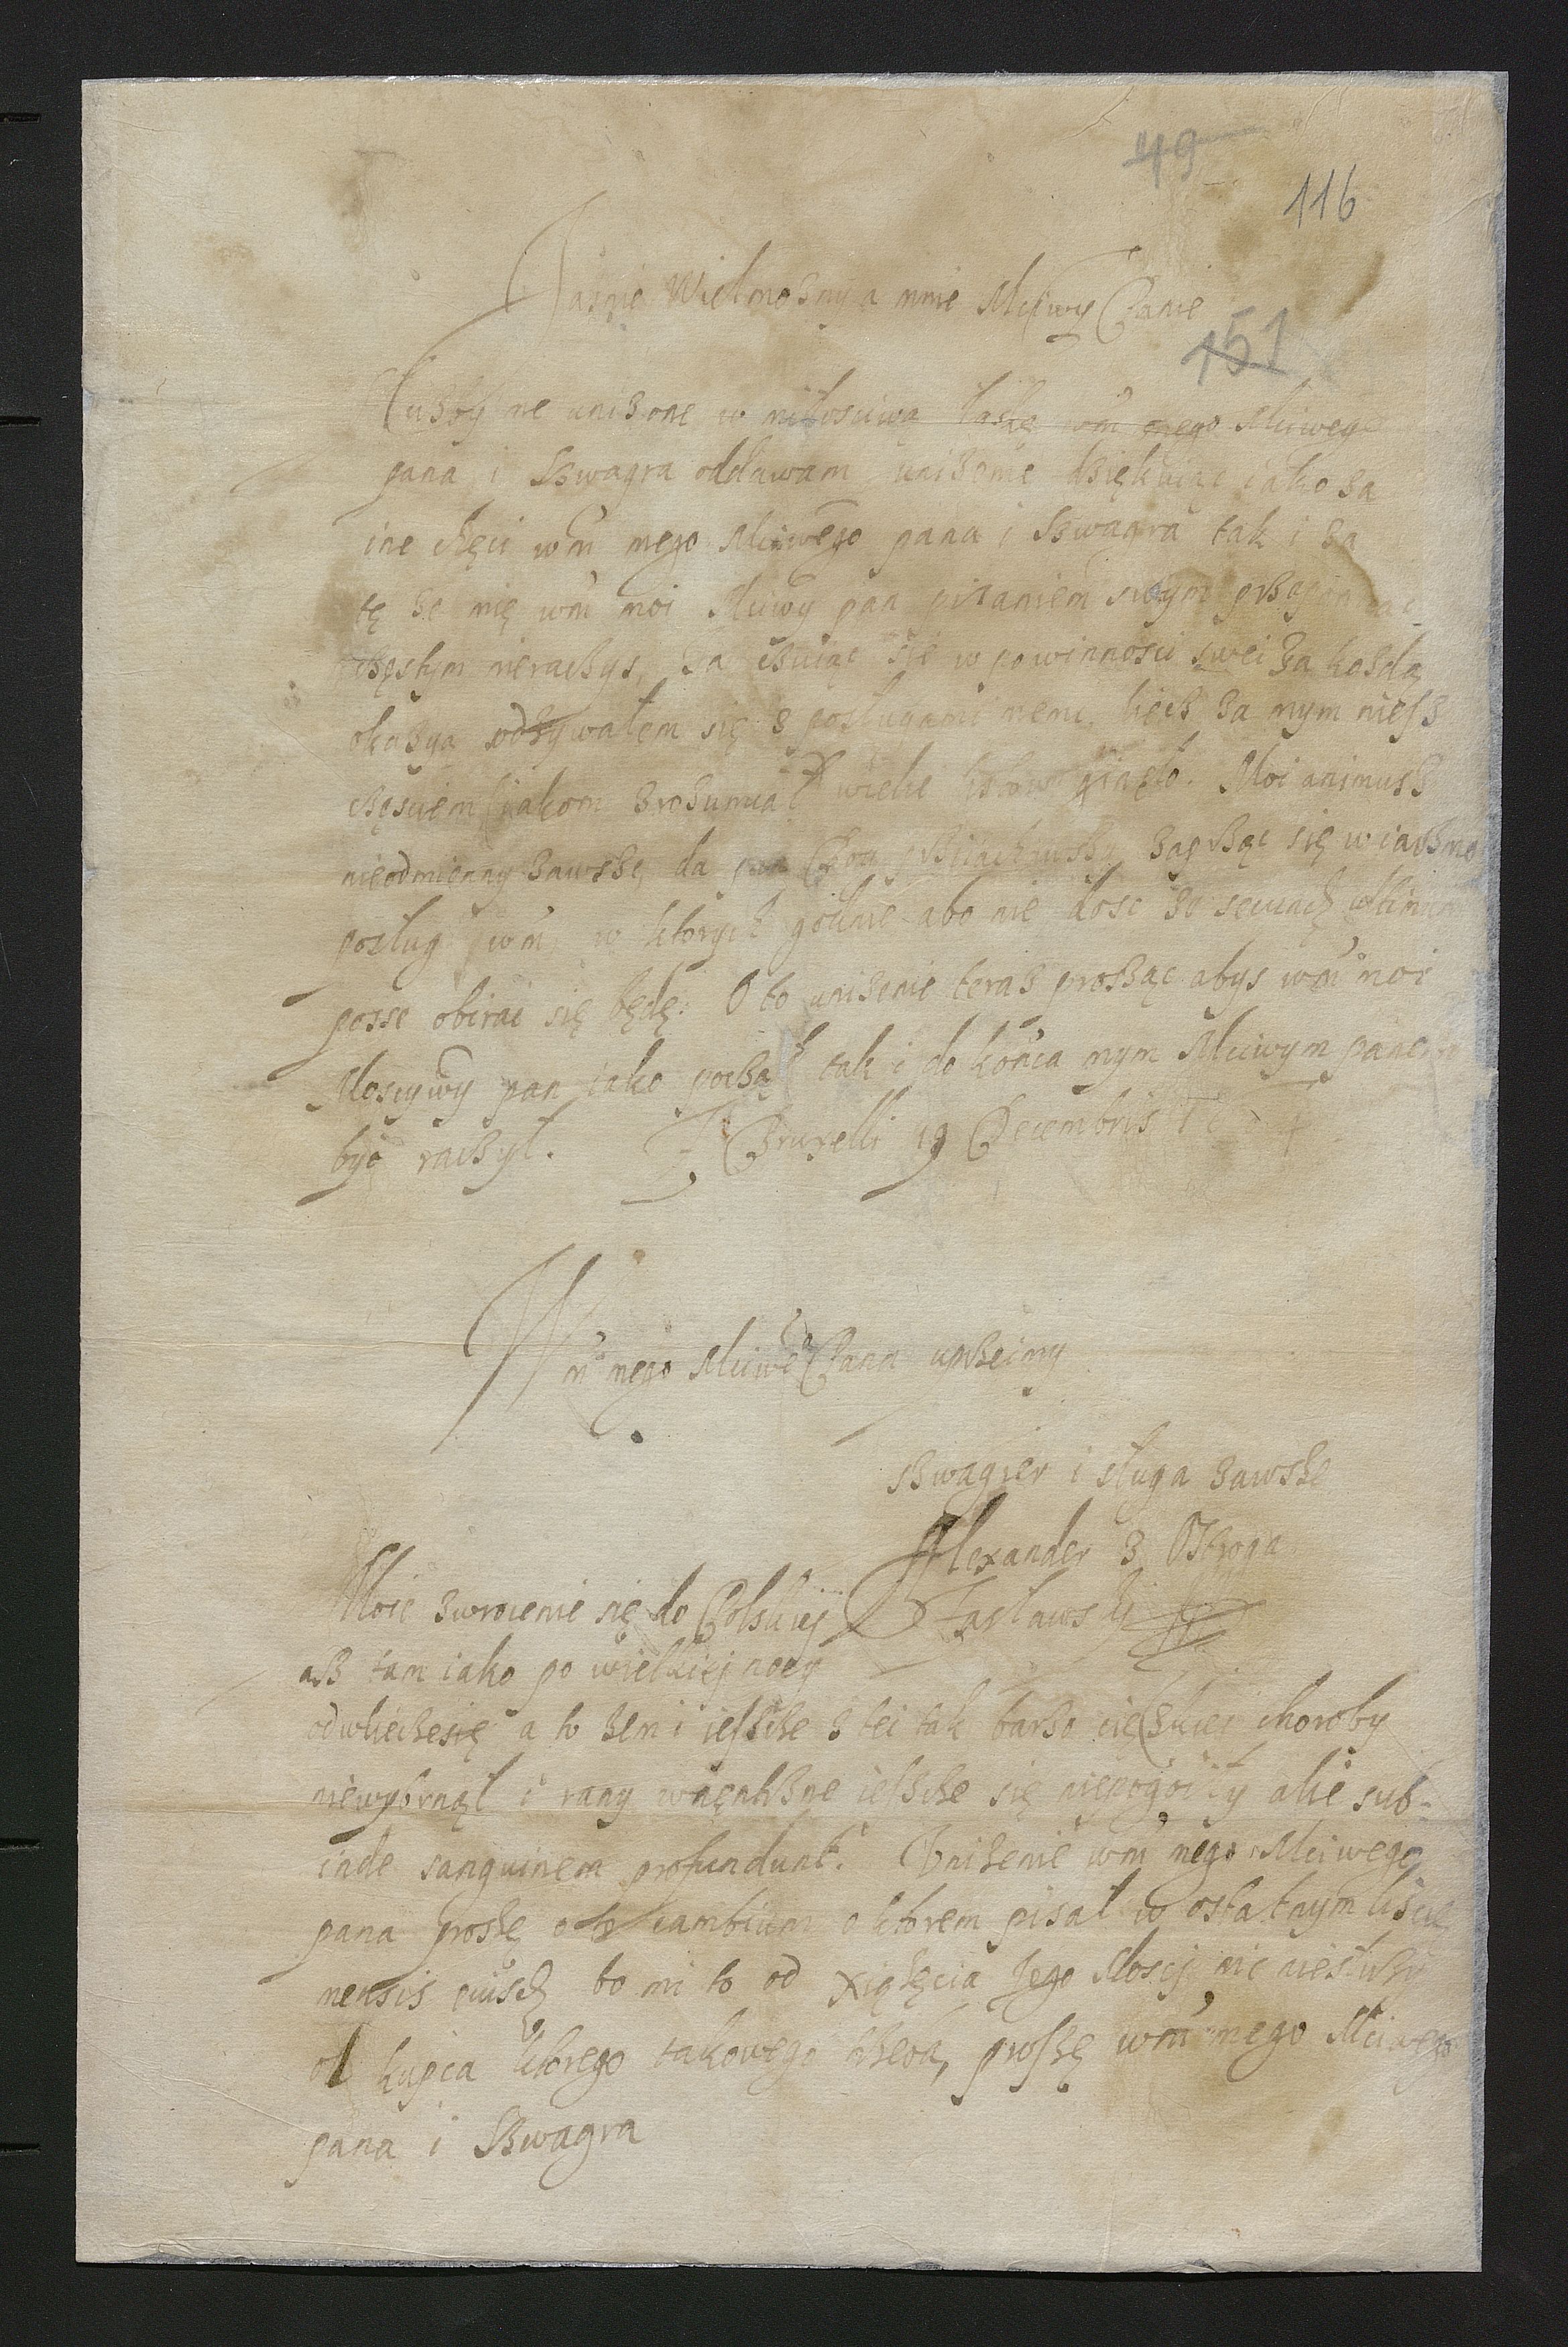 49
116
Jasnie Wielmozny a mnie Mciwy Panie
151
Słuzby me unizone w miłosciwą łaskę wm̃ mego Mciwego
pana i Szwagra oddawam unizenie dziękuiąc iako za
ine chęci wm̃ mego Mciwego pana i Szwagra tak i za
tę ze mię wm̃ moi Mciwy pan pisaniem swym
częstym nieraczys, Ja czuiąc się w powinnosci swei za kozdą
okazyą odzywałem się z posługami memi, liecz za mym niesz
częsciem (iakom zrozumiał) wiele listow ginęło. Moi animusz
nieodmienny zawsze, da pan się w
posług wm̃ w ktorych godnie abo nie dosc ze
posse obirac się będę. O to unizenie teraz prosząc abys wm̃ moi
Mosciwy pan iako począł tak i do końca mym Mciwym panem
być raczył. Z Bruxelli 19 Decembris
Wm̃ mego Mciwe° Pana uprzeimy
szwagier i sługa zawsze
Alexander z Ostroga
Zasławski
Moie zwrocenie się do Polskiej
asz tam iako po wielkiej nocy
odwliecze się a to zem i iescze z tei tak barzo cięszkiei choroby
niewybrnął i rany wnętrzne iescze się niepogoiły alie sub-
inde sanguinem profundunt. Unizenie wm̃ mego Mciwego
pana proszę o to cambium o ktorem pisał w ostatnym liscie
mensis eiusd. bo mi to od Xiązęcia Jego Mosci nic niesłuzy
od kupca ktorego takowego trzeba, proszę wm̃ mego Mciwego
pana i Szwagra